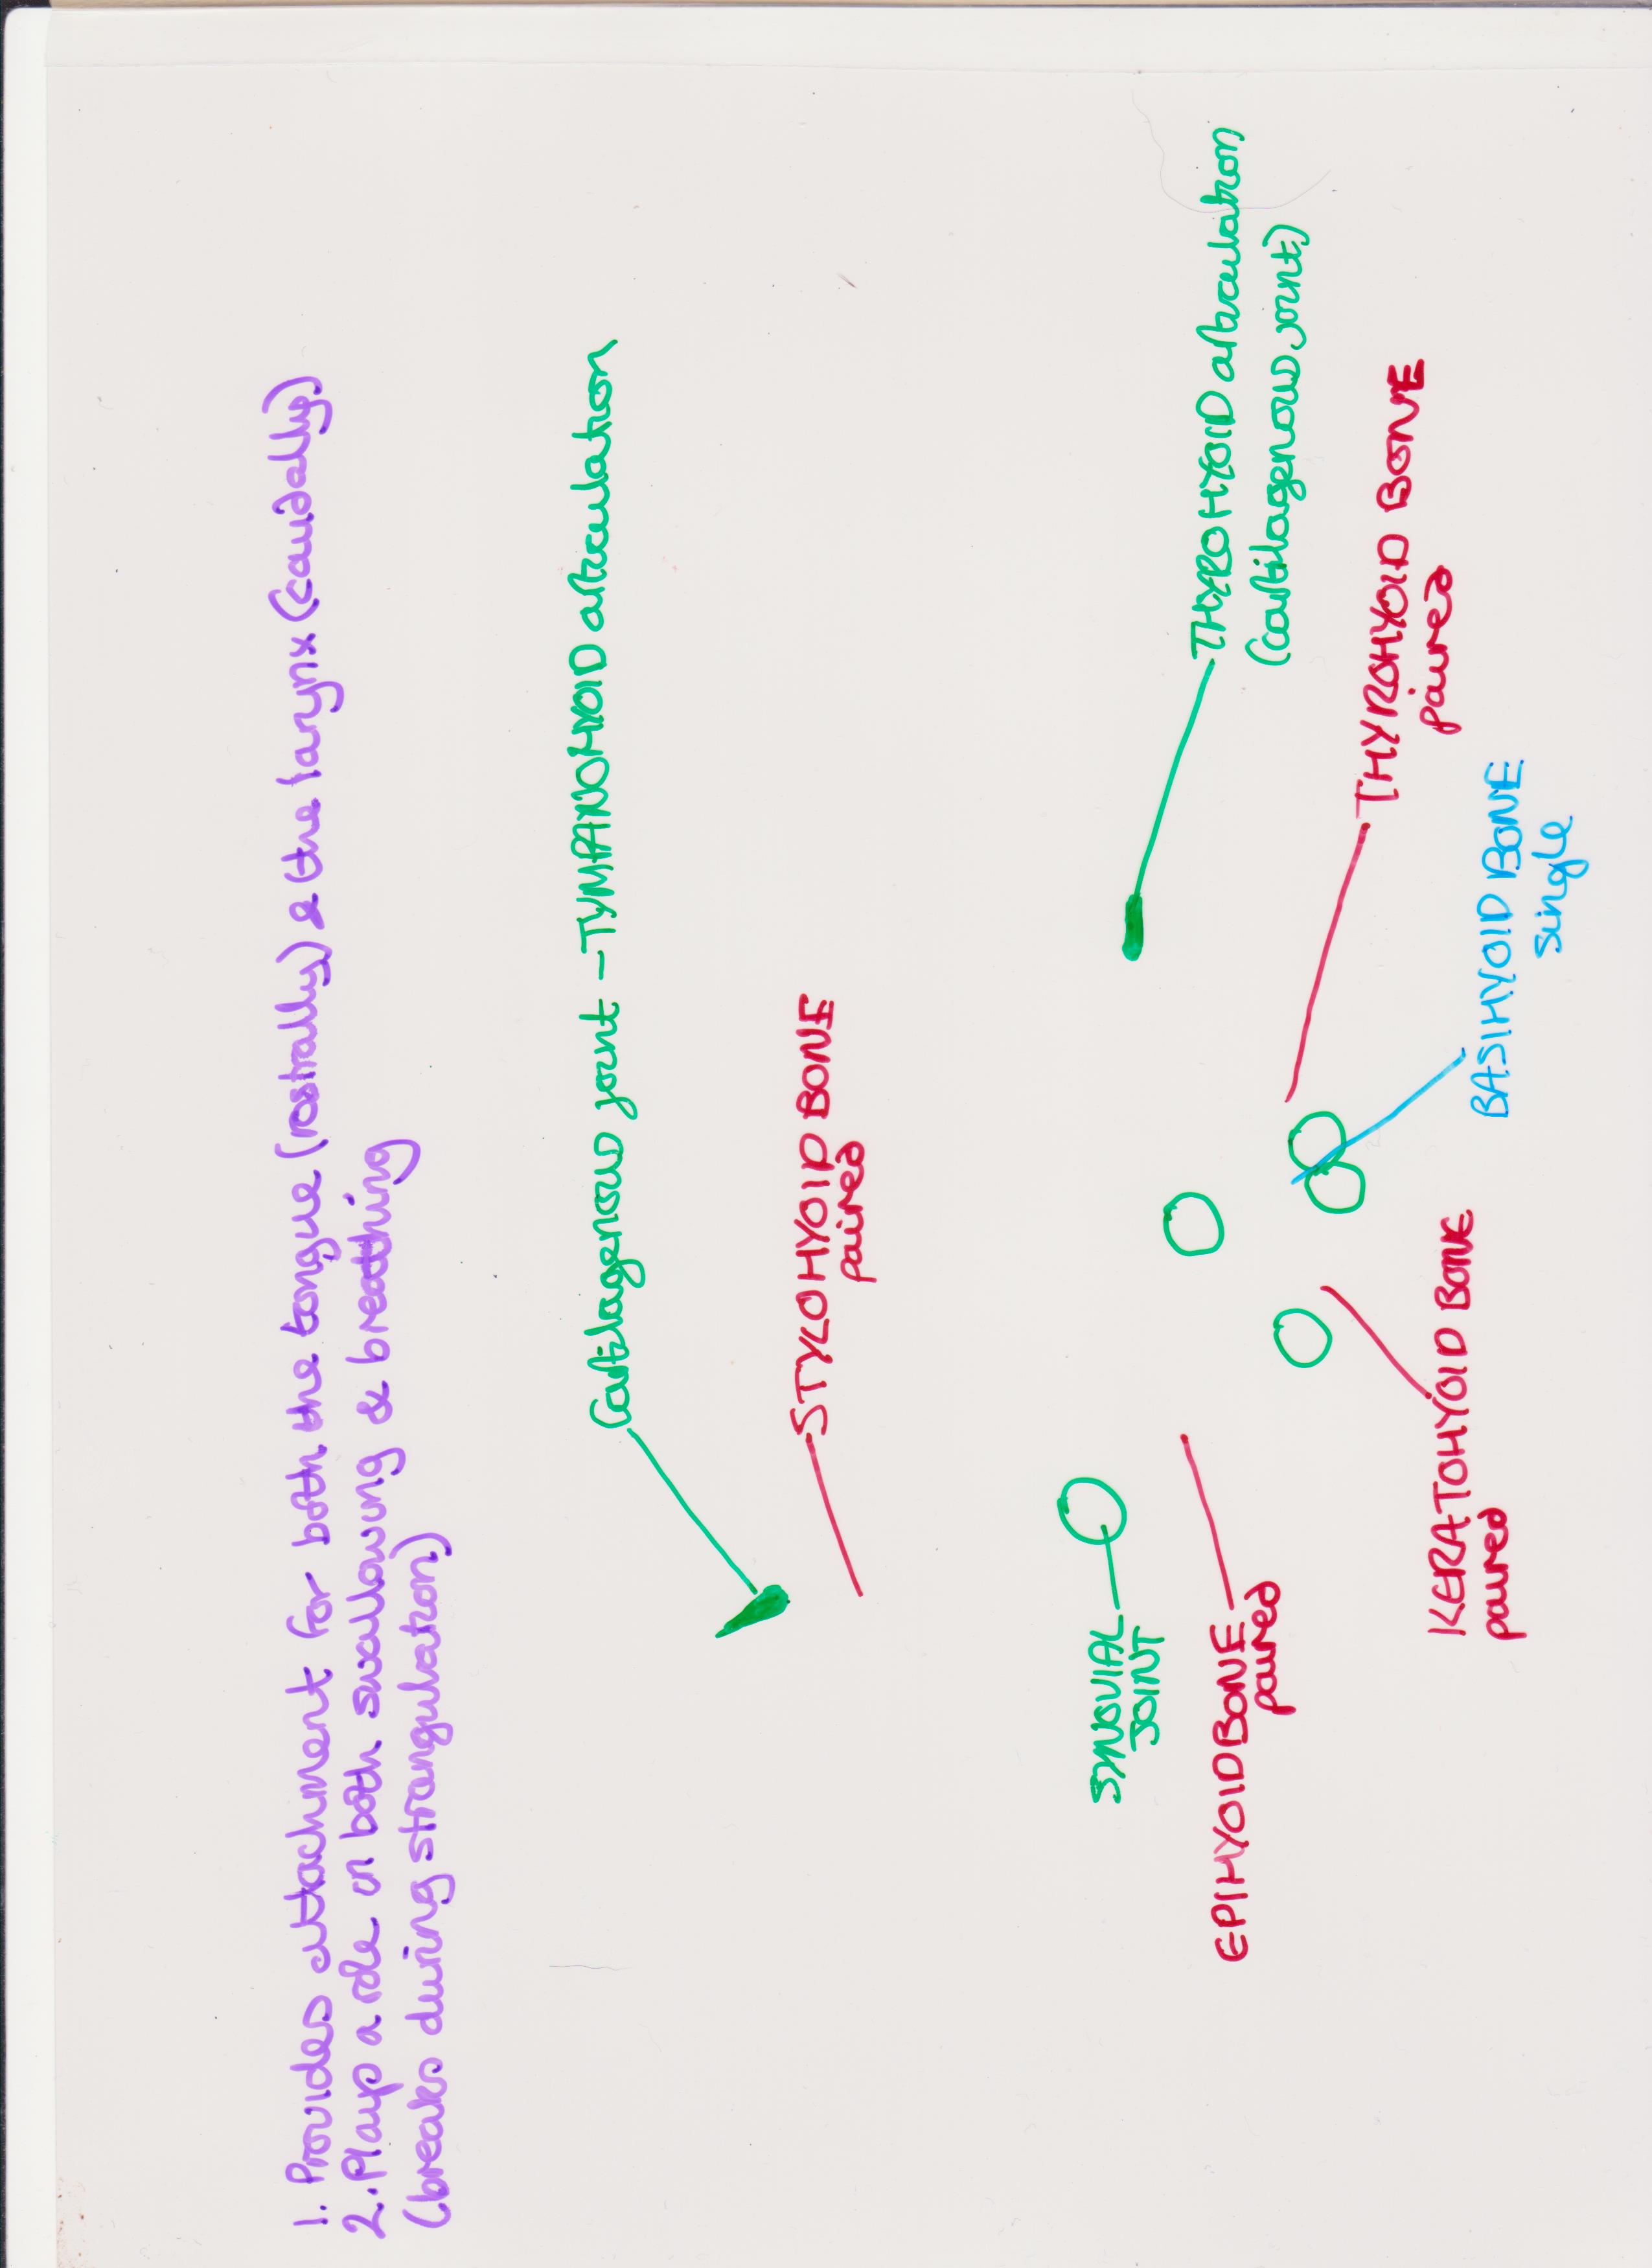 1. Provides attachment for both the tongue (rostrally) & the larynx (caudally)
2. Plays a role in both swallowing & breathing
(breaks during strangulation)
Cartilagenous joint - TYMPANOHYOID articulation
STYLOHYOID BONE
paired
SYNOVIAL
JOINT
THYROHYOID articulation
(cartilagenous joint)
EPIHYOID BONE
paired
THYROHYOID BONE
paired
KERATOHYOID BONE
paired
BASIHYOID BONE
single